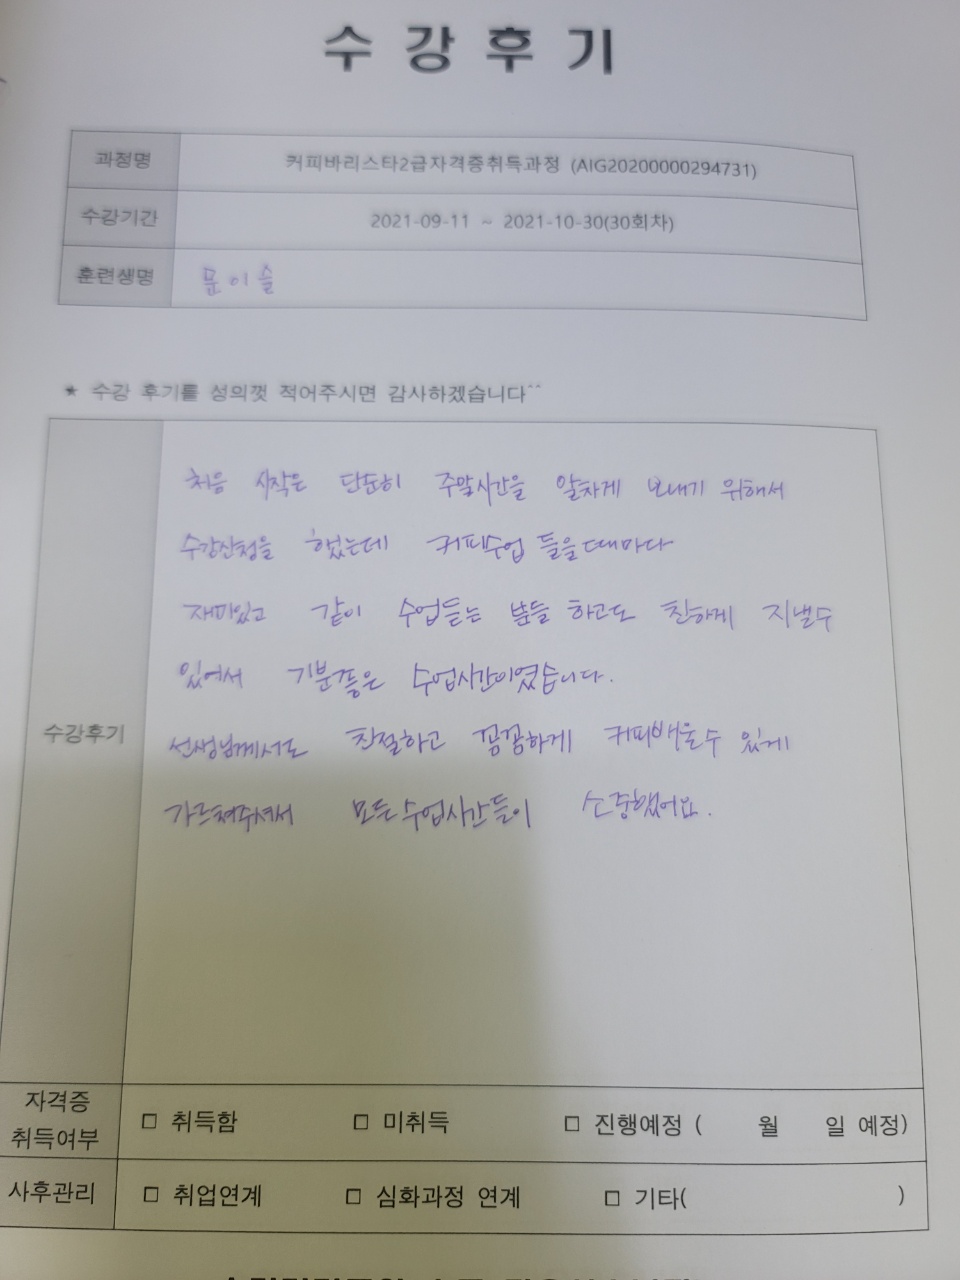 수강후기
과정명 커피바리스타2급자격증취득과정 (AIG20200000294731)
수강기간 2021-09-11 ~ 2021-10-30(30회차)
훈련생명 문이슬
★ 수강 후기를 성의껏 적어주시면 감사하겠습니다^^
처음 시작은 단순히 주말시간을 알차게 보내기 위해서
수강신청을 했는데 커피수업 들을때마다
재미있고 같이 수업듣는 분들 하고도 친하게 지낼수
있어서 기분좋은 수업시간이였습니다.
수강후기
선생님께서도 친절하고 꼼꼼하게 커피배울수 있게
가르쳐주셔서 모든수업시간들이 소중했어요.
자격증
취득여부
□ 취득함 □ 미취득 □ 진행예정 ( 월 일 예정)
사후관리 □ 취업연계 □ 심화과정 연계 □ 기타( )